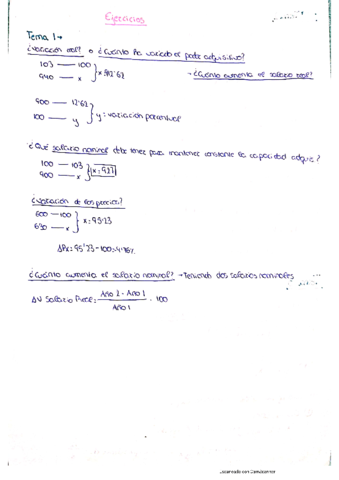 Ejercicios
Tema 1→
¿Variación real? o ¿Cuánto ha variado el poder adquisitivo?
103 — 100
940 — x } x = 912'62
→ ¿Cuánto aumenta el salario real?
900 — 12'62
100 — y } y: variación porcentual
¿Qué salario nominal debe tener para mantener constante la capacidad adquis.?
100 — 103
900 — x } x = 927
¿Variación de los precios?
600 — 100
630 — x } x = 95'23
ΔPx = 95'23 - 100 = 4'76%
¿Cuánto aumenta el salario nominal? → Teniendo dos salarios nominales
ΔN Salario Real = Año 2 - Año 1 / Año 1 · 100
Escaneado con CamScanner